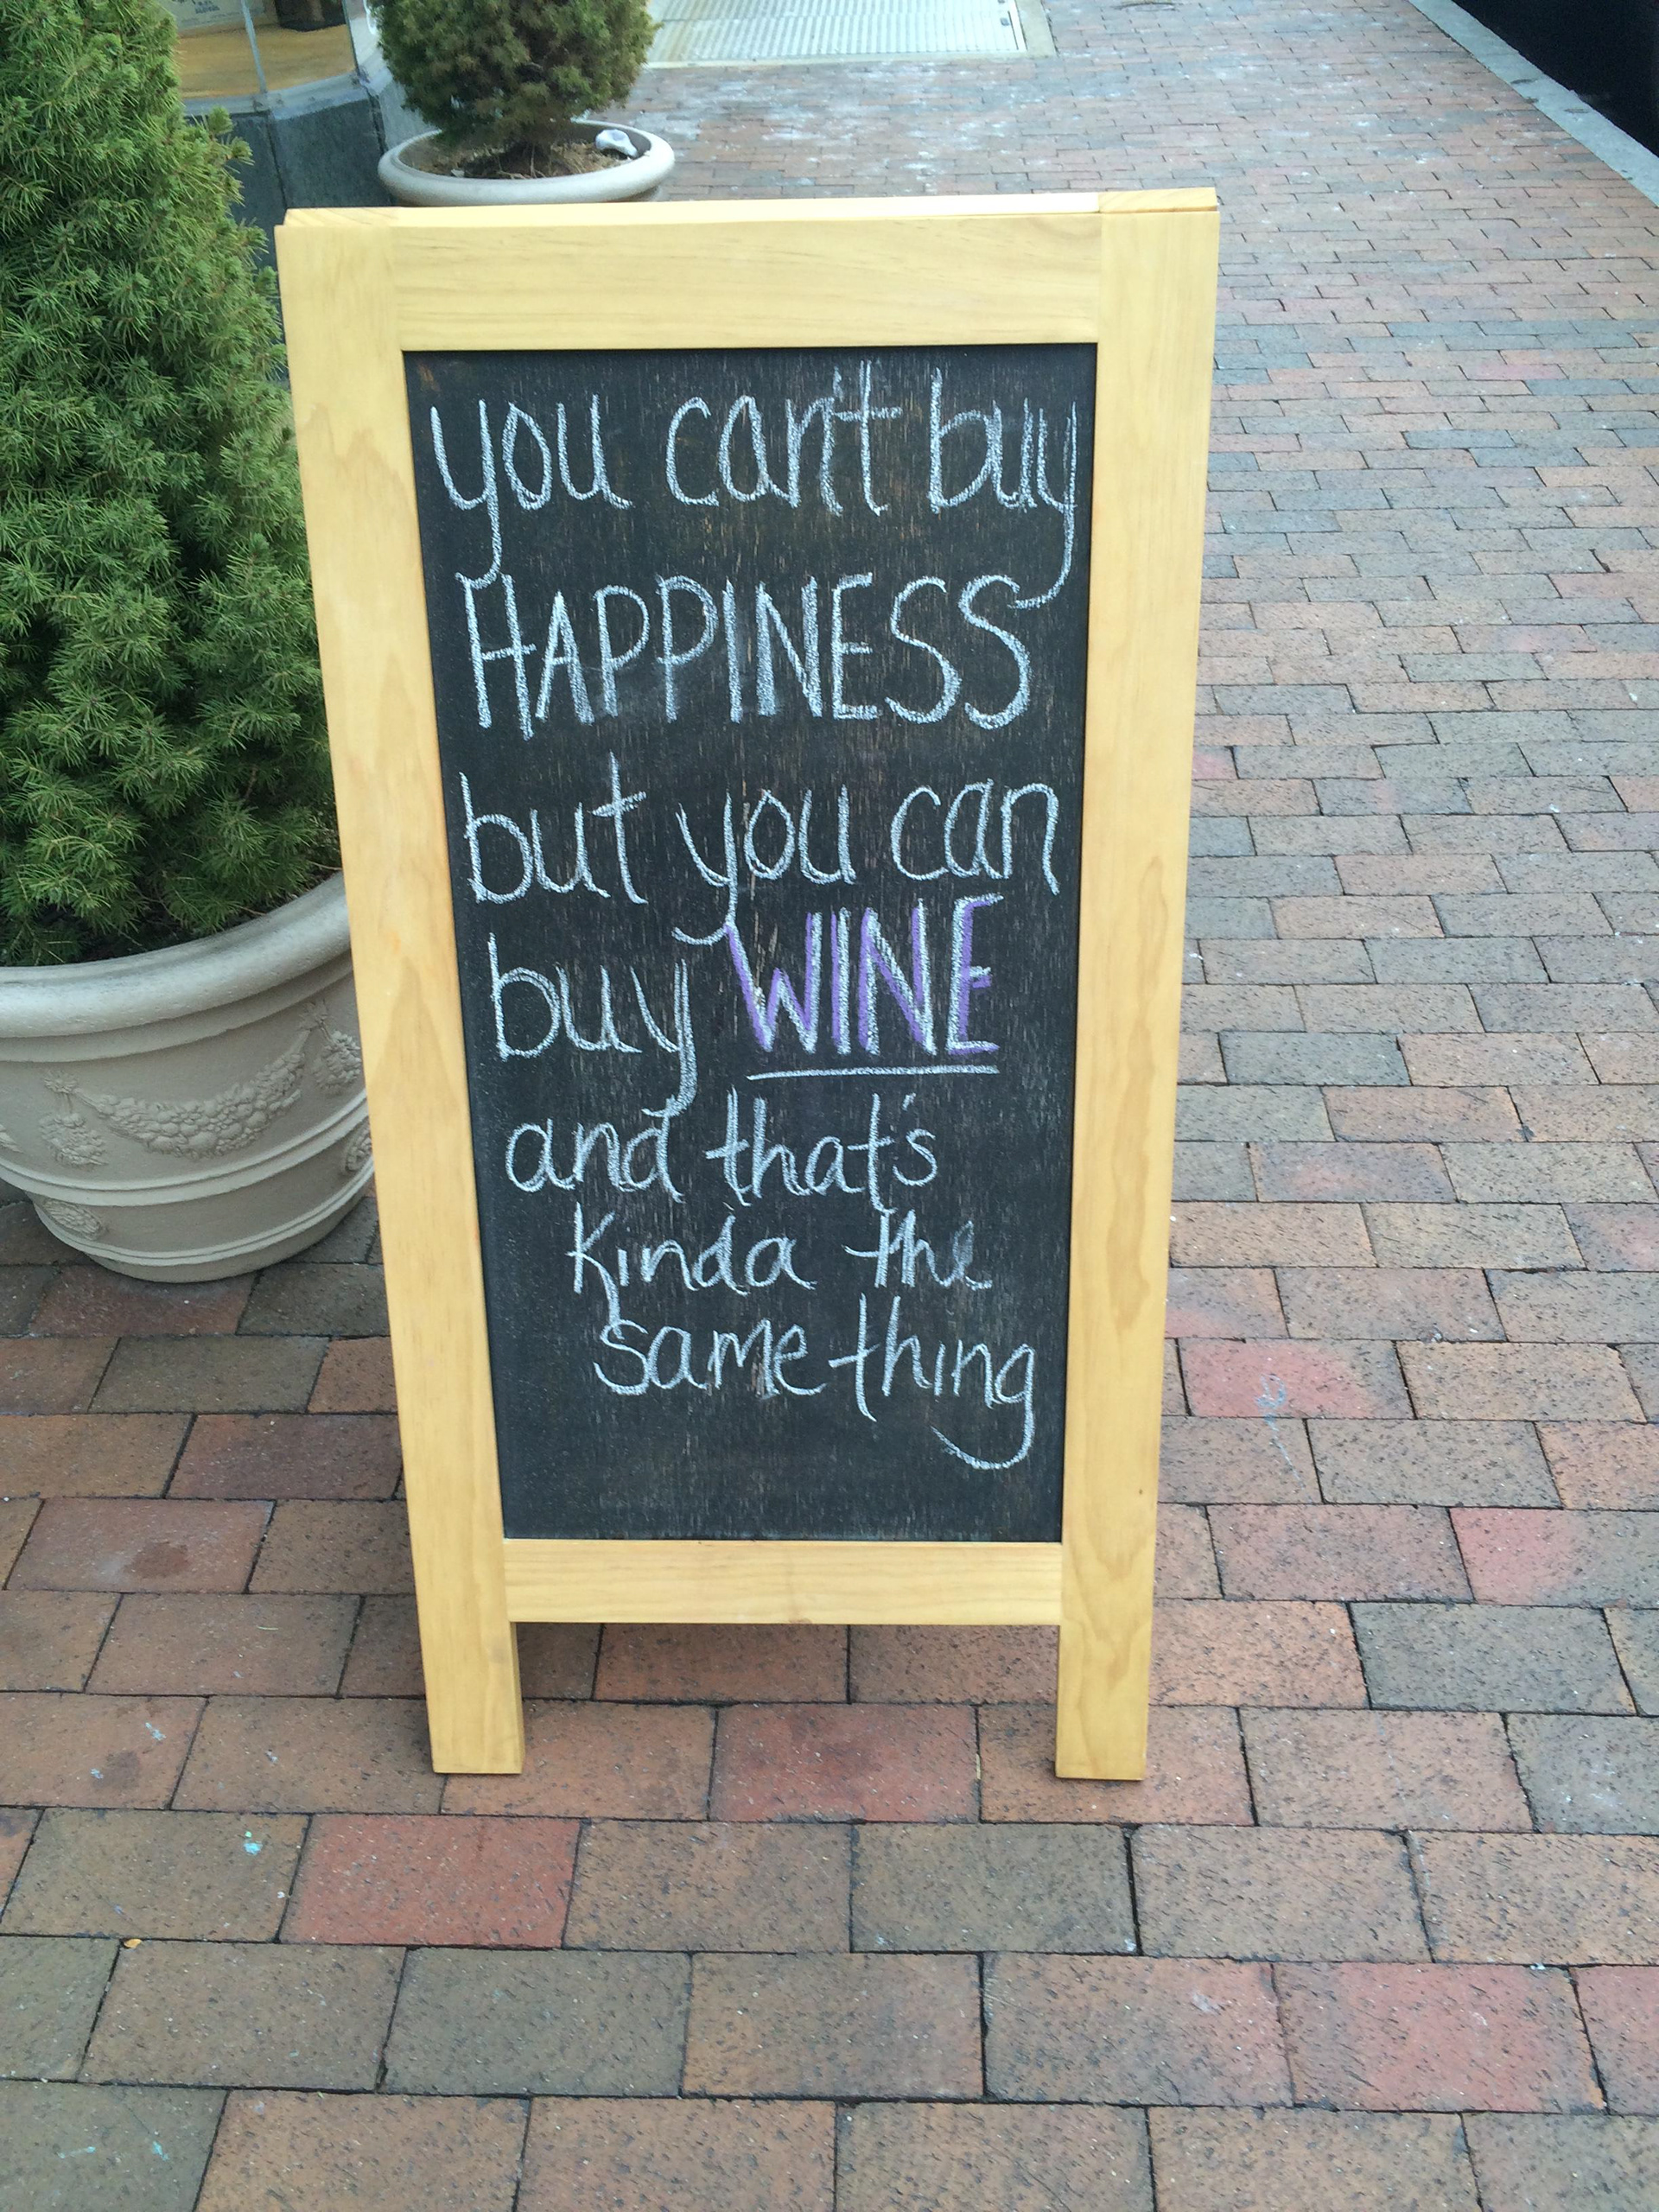 you can't buy
HAPPINESS
but you can
buy WINE
and that's
kinda the
same thing